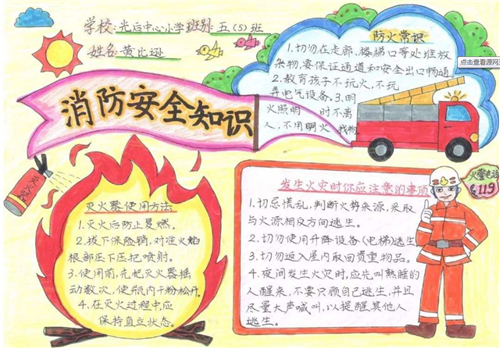 学校:光远中心小学班别:五(5)班
姓名:黄比逊
消防安全知识
防火常识
1.切勿在走廊、楼梯口等处堆放
杂物,要保证通道和安全出口畅通
2.教育孩子不玩火,不玩
弄电气设备。3.明
火照明 时不离
人,不用明火 找物
点击查看源网页
灭火器使用方法
1.灭火后防止复燃。
2.拔下保险销,对准火焰
根部压下压把喷射。
3.使用前,先把灭火器摇
动数次,使瓶内干粉松开。
4.在灭火过程中应
保持直立状态。
灭火器
发生火灾时你应注意的事项
1.切忌慌乱,判断火势来源,采取
与火源相反方向逃生。
2.切勿使用升降设备(电梯)逃生
3.切勿返入屋内取回贵重物品。
4.夜间发生火灾时,应先叫熟睡的
人醒来,不要只顾自己逃生,并且
尽量大声喊叫,以提醒其他人
逃生。
火警电话
119